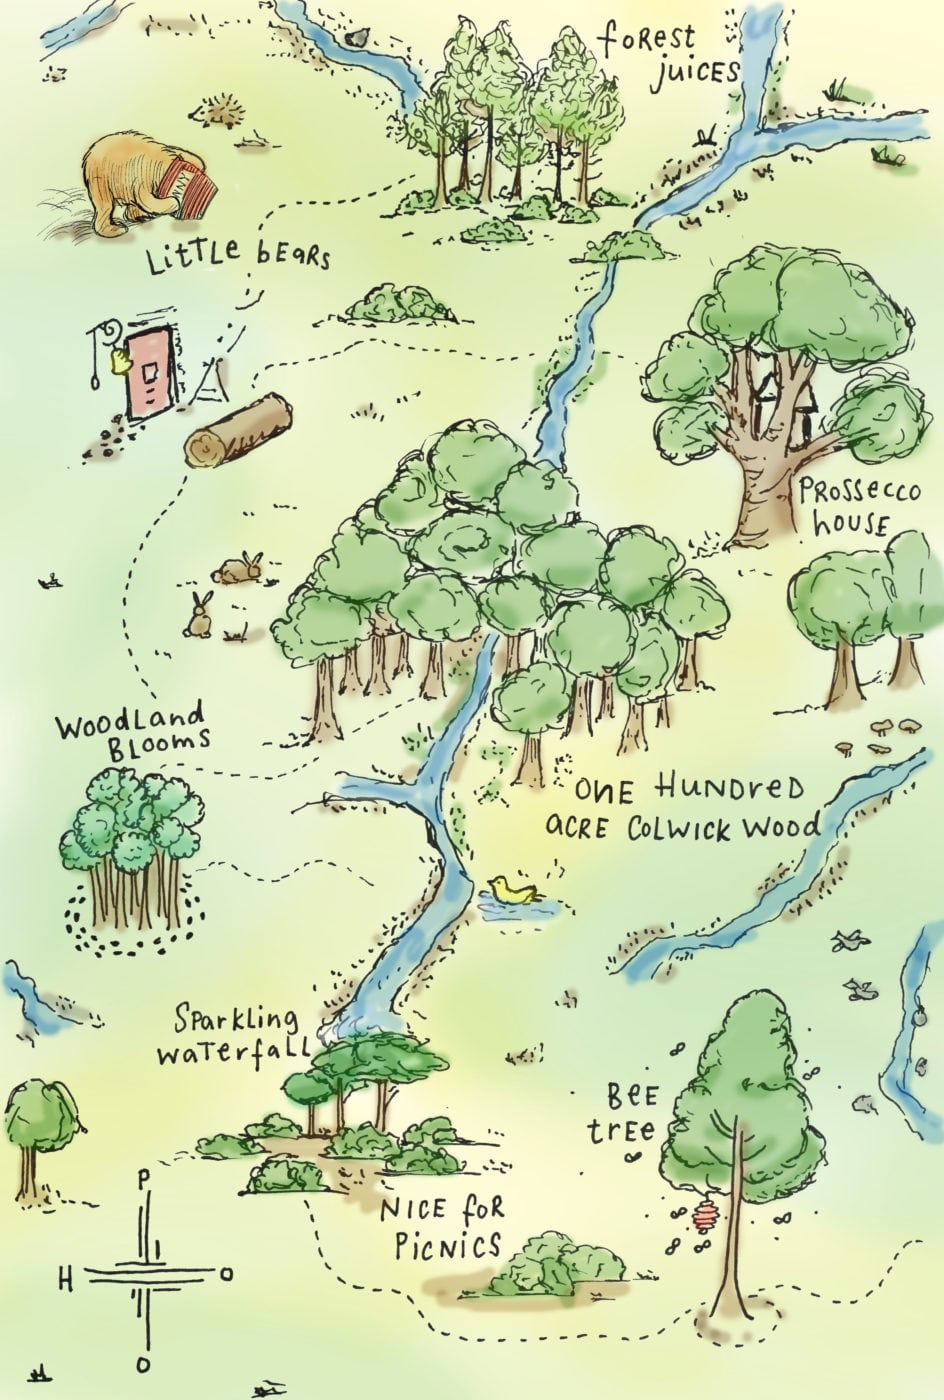 forest
juices
NNY
Little bears
Prossecco
house
Woodland
Blooms
One Hundred
acre Colwick Wood
Sparkling
waterfall
Bee
tree
Nice for
Picnics
P
H O
O